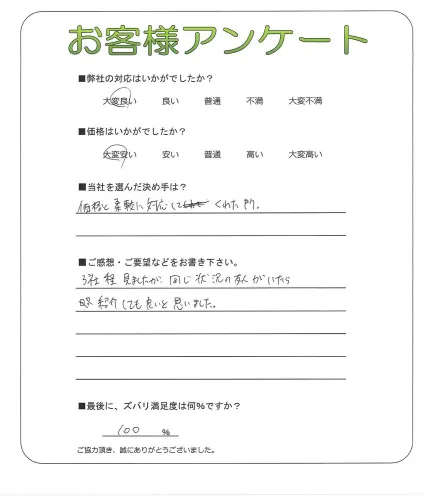 お客様アンケート
■弊社の対応はいかがでしたか？
大変良い 良い 普通 不満 大変不満
■価格はいかがでしたか？
大変安い 安い 普通 高い 大変高い
■当社を選んだ決め手は？
価格と柔軟に対応して くれた所。
■ご感想・ご要望などをお書き下さい。
3社程見ましたが、同じ状況の友人がいたら
紹介しても良いと思いました。
■最後に、ズバリ満足度は何％ですか？
100 ％
ご協力頂き、誠にありがとうございました。